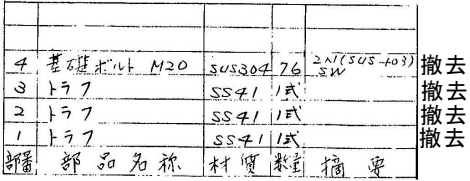 4 基礎ボルト M20 SUS304 76 2N1(SUS403) SW 撤去
3 トラフ SS41 1式 撤去
2 トラフ SS41 1式 撤去
1 トラフ SS41 1式 撤去
部番 部品名称 材質 数量 摘要